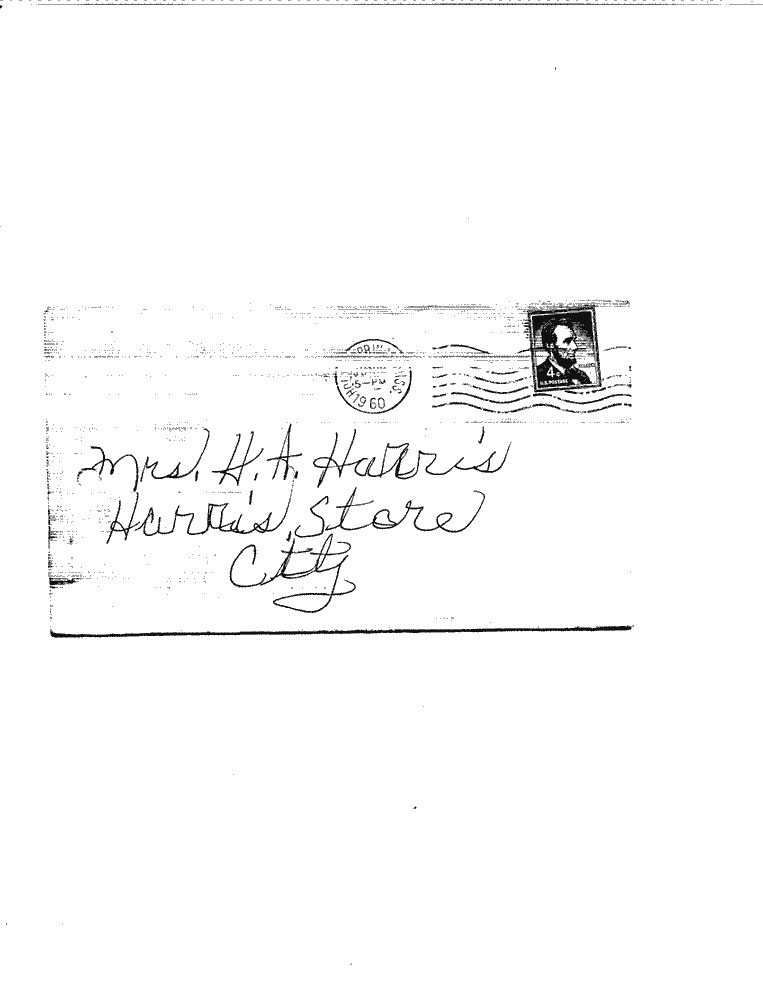 5-PM
1960
4¢
U.S. POSTAGE
Mrs. H. A. Harris
Harris Store
City